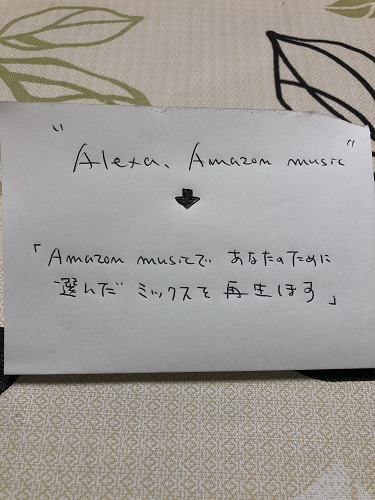 "Alexa、Amazon music"
↓
「Amazon musicで あなたのために
選んだ ミックスを 再生します」